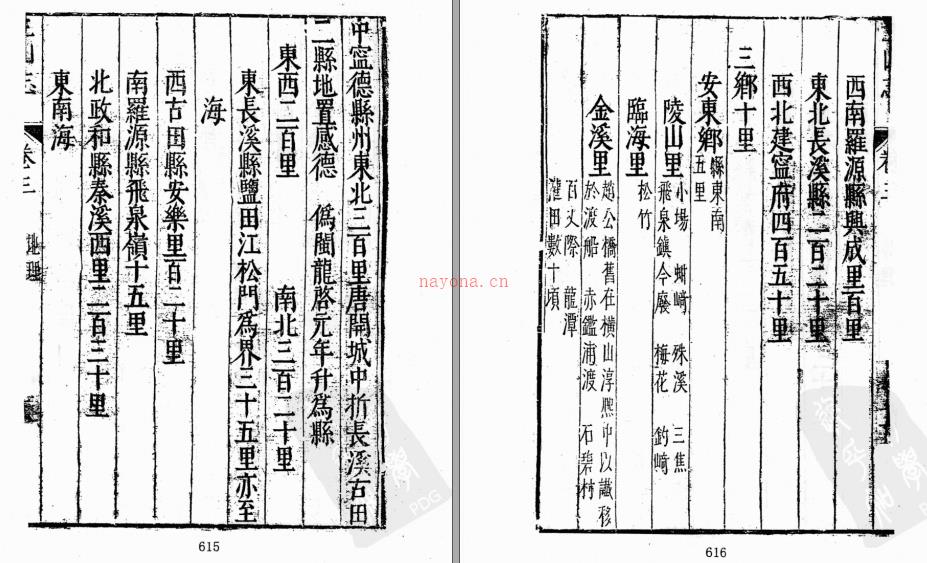 中寧德縣州東北三百里唐開城中折長溪古田
二縣地置感德 偽閩龍啓元年升為縣
東西二百里 南北三百二十里
東長溪縣鹽田江松門為界三十五里亦至
海
西古田縣安樂里百二十里
南羅源縣飛泉嶺十五里
北政和縣秦溪西里二百三十里
東南海
卷三
地理
615
西南羅源縣興成里百里
東北長溪縣二百二十里
西北建寧府四百五十里
三鄉十里
安東鄉縣東南五里
陵山里小場 蚶﨑 殊溪 三焦
飛泉鎮今廢 梅花 釣﨑
臨海里松竹
金溪里趙公橋舊在橫山淳熙中以讖移
於渡船 赤鑑浦渡 石碧村
百丈際 龍潭
灌田數十頃
616
nayona.cn
PDG